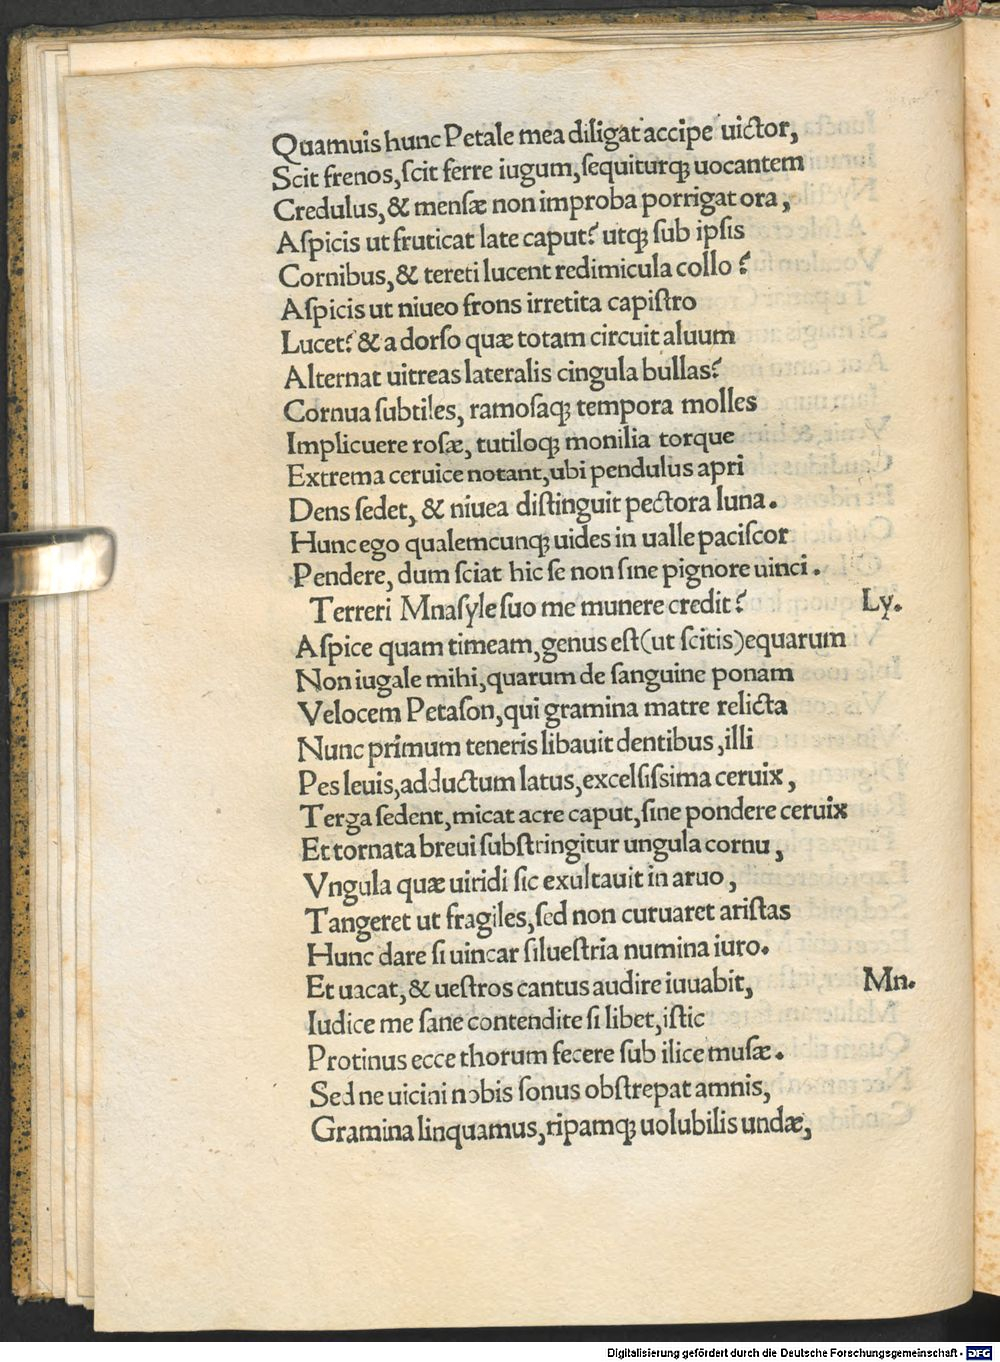 Quamuis hunc Petale mea diligat accipe uictor,
Scit frenos, ſcit ferre iugum, ſequiturqꝫ uocantem
Credulus, & menſæ non improba porrigat ora,
Aſpicis ut fruticat late caput? utqꝫ ſub ipſis
Cornibus, & tereti lucent redimicula collo?
Aſpicis ut niueo frons irretita capiſtro
Lucet? & a dorſo quæ totam circuit aluum
Alternat uitreas lateralis cingula bullas?
Cornua ſubtiles, ramoſaqꝫ tempora molles
Implicuere roſæ, tutiloqꝫ monilia torque
Extrema ceruice notant, ubi pendulus apri
Dens ſedet, & niuea diſtinguit pectora luna.
Hunc ego qualemcunqꝫ uides in ualle paciſcor
Pendere, dum ſciat hic ſe non ſine pignore uinci.
Terreri Mnaſyle ſuo me munere credit? Ly.
Aſpice quam timeam, genus eſt (ut ſcitis) equarum
Non iugale mihi, quarum de ſanguine ponam
Velocem Petaſon, qui gramina matre relicta
Nunc primum teneris libauit dentibus, illi
Pes leuis, adductum latus, excelſiſsima ceruix,
Terga ſedent, micat acre caput, ſine pondere ceruix
Et tornata breui ſubſtringitur ungula cornu,
Vngula quæ uiridi ſic exultauit in aruo,
Tangeret ut fragiles, ſed non curuaret ariſtas
Hunc dare ſi uincar ſilueſtria numina iuro.
Et uacat, & ueſtros cantus audire iuuabit, Mn.
Iudice me ſane contendite ſi libet, iſtic
Protinus ecce thorum fecere ſub ilice muſæ.
Sed ne uicini nobis ſonus obſtrepat amnis,
Gramina linquamus, ripamqꝫ uolubilis undæ,
Digitalisierung gefördert durch die Deutsche Forschungsgemeinschaft - DFG